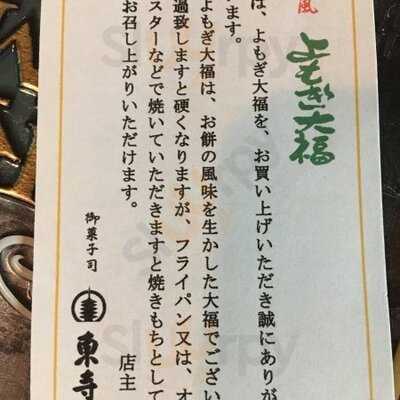 風
よもぎ大福
は、よもぎ大福を、お買い上げいただき誠にありが
ます。
よもぎ大福は、お餅の風味を生かした大福でござい
過致しますと硬くなりますが、フライパン又は、オ
スターなどで焼いていただきますと焼きもちとして
お召し上がりいただけます。
御菓子司
東寺
店主